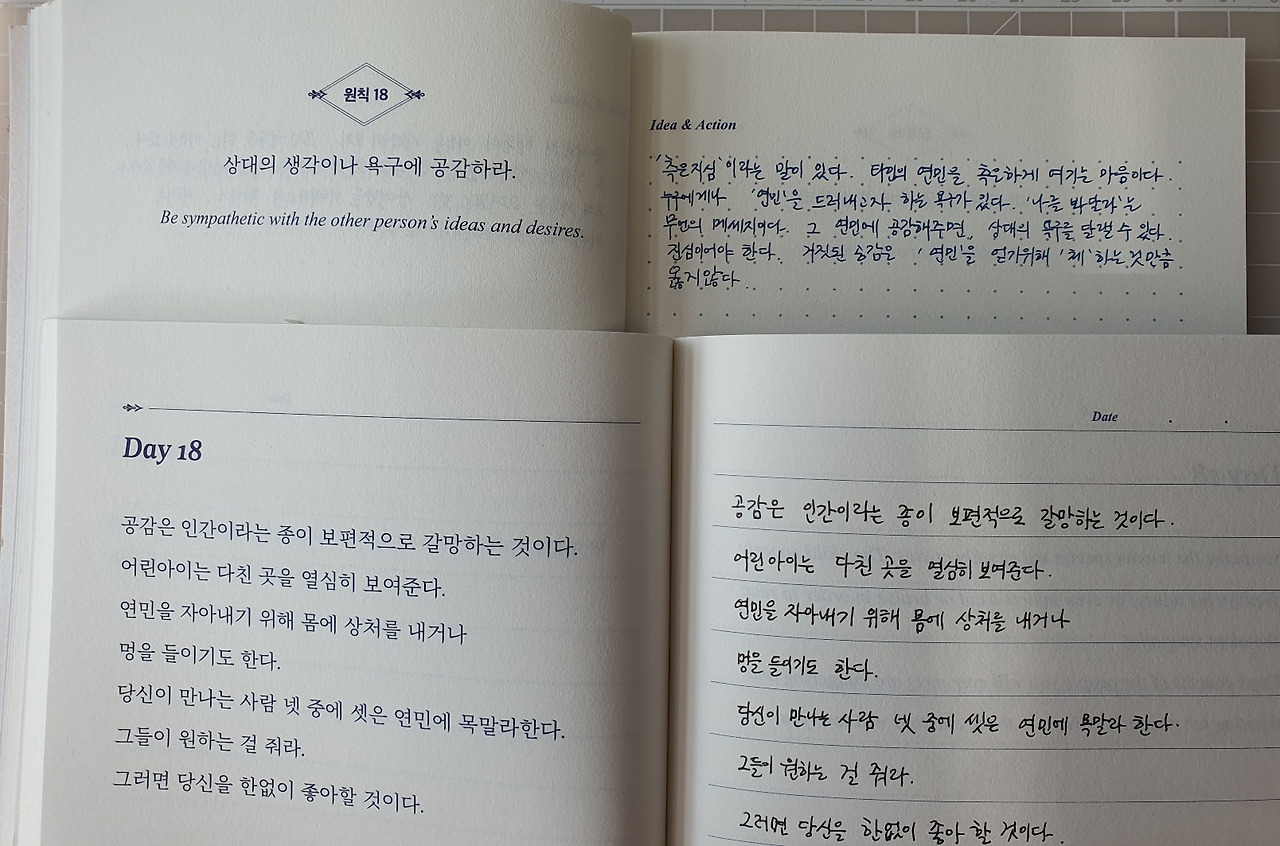 원칙 18
상대의 생각이나 욕구에 공감하라.
Be sympathetic with the other person's ideas and desires.
Idea & Action
'측은지심'이라는 말이 있다. 타인의 연민을 측은하게 여기는 마음이다.
누구에게나 '연민'을 드러내고자 하는 욕구가 있다. '나를 봐달라'는
무언의 메세지이다. 그 연민에 공감해주면, 상대의 욕구를 달랠 수 있다.
진심이어야 한다. 거짓된 공감은 '연민'을 얻기위해 '체'하는것만큼
옳지않다.
Day 18
공감은 인간이라는 종이 보편적으로 갈망하는 것이다.
어린아이는 다친 곳을 열심히 보여준다.
연민을 자아내기 위해 몸에 상처를 내거나
멍을 들이기도 한다.
당신이 만나는 사람 넷 중에 셋은 연민에 목말라한다.
그들이 원하는 걸 줘라.
그러면 당신을 한없이 좋아할 것이다.
Date . .
공감은 인간이라는 종이 보편적으로 갈망하는 것이다.
어린아이는 다친 곳을 열심히 보여준다.
연민을 자아내기 위해 몸에 상처를 내거나
멍을 들이기도 한다.
당신이 만나는 사람 넷 중에 셋은 연민에 목말라 한다.
그들이 원하는 걸 줘라.
그러면 당신을 한없이 좋아 할 것이다.